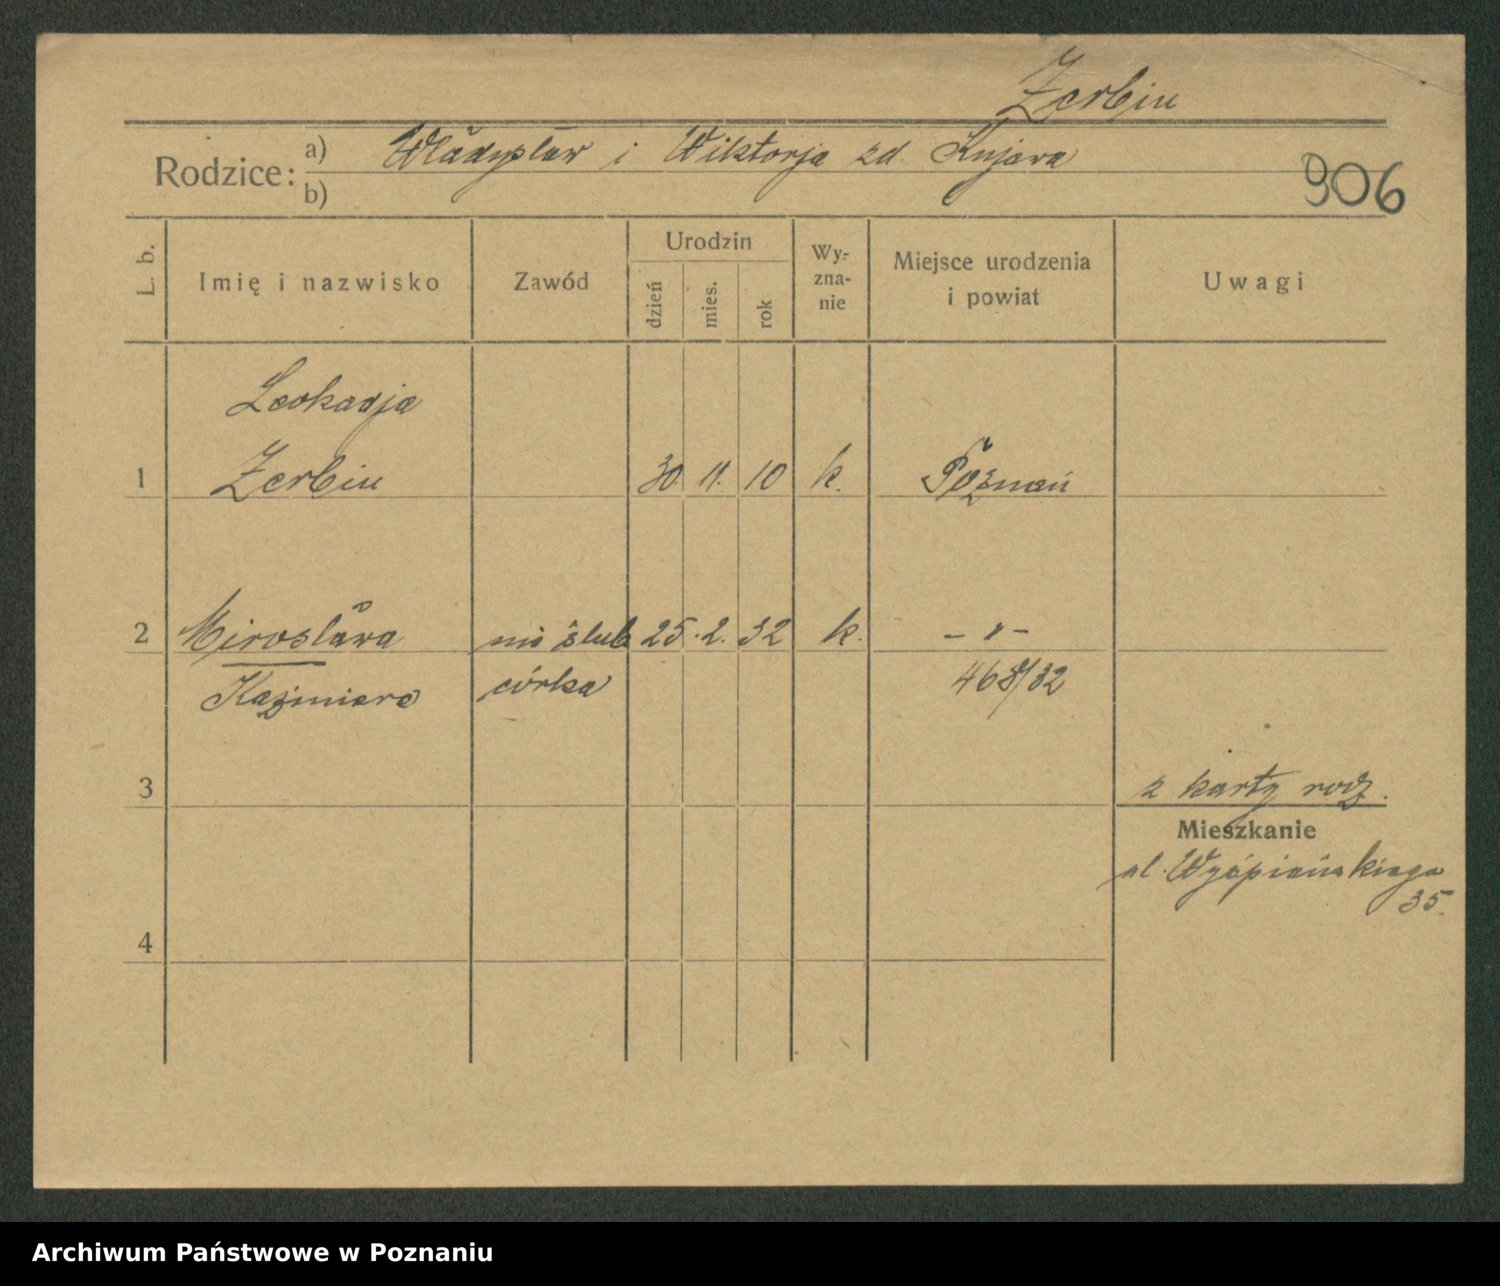 Zerbin
Rodzice: a) Władysław i Wiktorja zd. Kujawa
b)
906
L. b. Imię i nazwisko Zawód Urodzin dzień mies. rok Wy-zna-nie Miejsce urodzenia i powiat Uwagi
Leokadja
1 Zerbin 30. 11. 10 k. Poznań
2 Mirosława nieślub 25. 2. 32 k. – " –
Kaźmiera córka 468/32
3 z karty rodz.
Mieszkanie
ul. Wyspiańskiego
35.
4
Archiwum Państwowe w Poznaniu